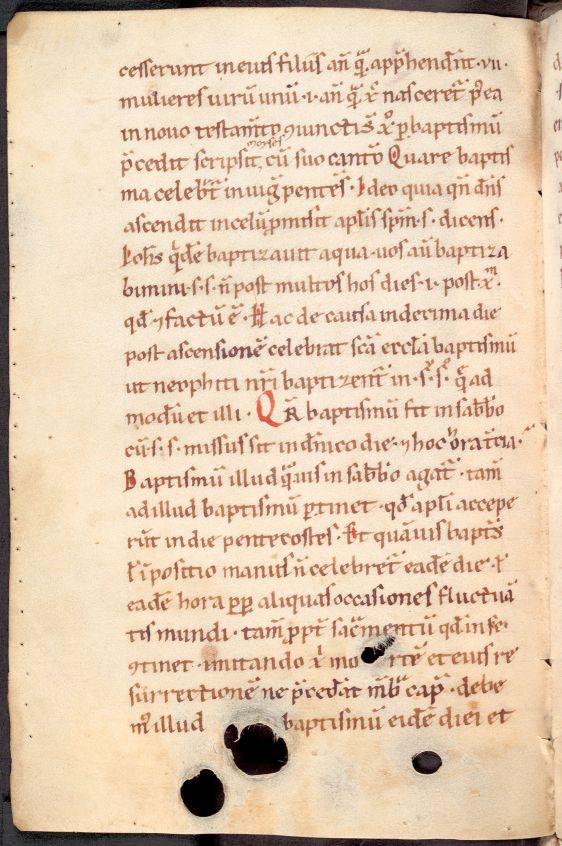 cesserunt in eius filiis añ q̃ apꝑhender̃it · vii ·
mulieres uirũ unũ · i · añ q̃ xp̃c nasceret̃ p̃ ea
in nouo testam̃to ꝯiunctis xp̃o ꝑ baptismũ
p̃cedit scripsit moyses cũ suo canto Quare baptis
ma celebr̃t in uiǧ pentes̃ · Ideo quia qñ dñs
ascendit in celũ pmisit apl̃is spm̃ · s · dicens ·
Ioh̃s q̃de baptizauit aqua · uos aũ baptiza
bimini · s · s · ñ post multos hos dies · i · post · x ·
qđ ⁊ factũ ẽ · Hac de causa in decima die
post ascensionẽ celebrat sc̃a eccl̃a baptismũ
ut neophiti nr̃i baptizent̃ in · s · s · q̃ ad
modũ et illi · QR̃ baptismũ fit in sabb̃o
cũ · s · s · missus sit in dñico die · ⁊ hoc
Baptismũ illud q̃uis in sabb̃o agat̃ · tam̃
ad illud baptismũ ꝑtinet · qđ apl̃i accepe
rũt in die pentecostes · Et quãuis bapts̃
ł ĩpositio manus ñ celebret̃ eadẽ die · ł
eadẽ hora ꝓp aliquas occasiones fluctuã
tis mundi · tam̃ ꝓpt̃ sac̃mentũ qđ in se ·
ꝯtinet · imitando xp̃i mo rtẽ et eius re
surrectionẽ ne p̃cedat mb̃ cap̃ · debe
m⁹ illud baptismũ eidẽ diei et